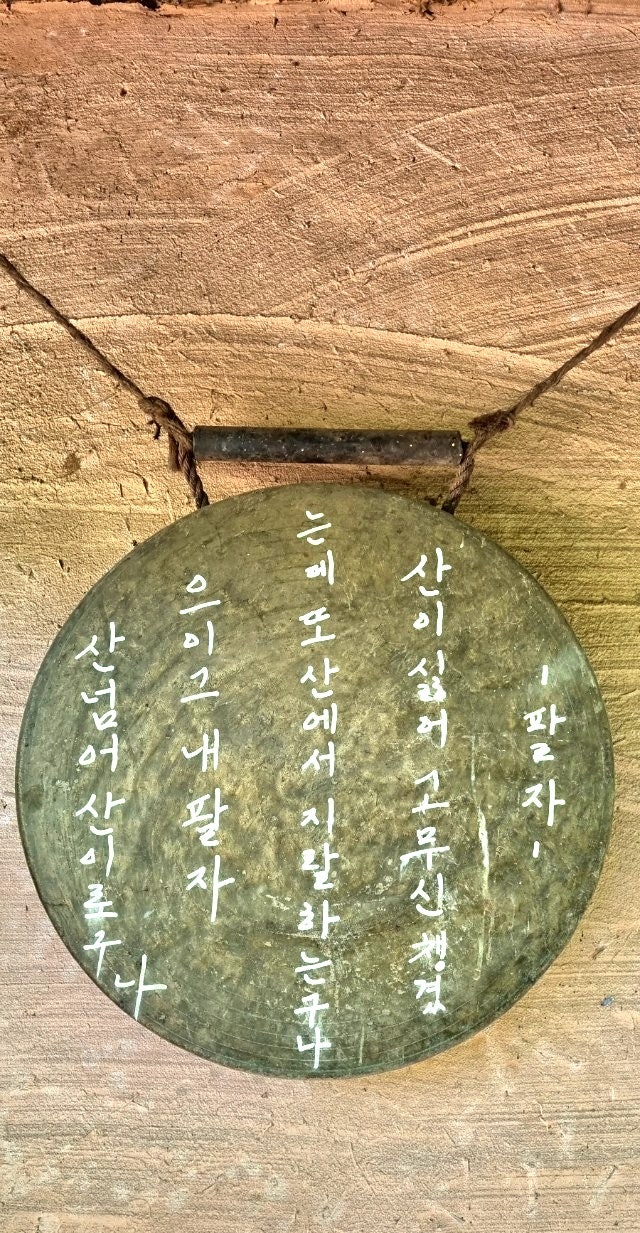 -팔자-
산이싫어 고무신 챙겼
는데 또 산에서 지랄하는구나
으이그 내 팔자
산넘어 산이로구나